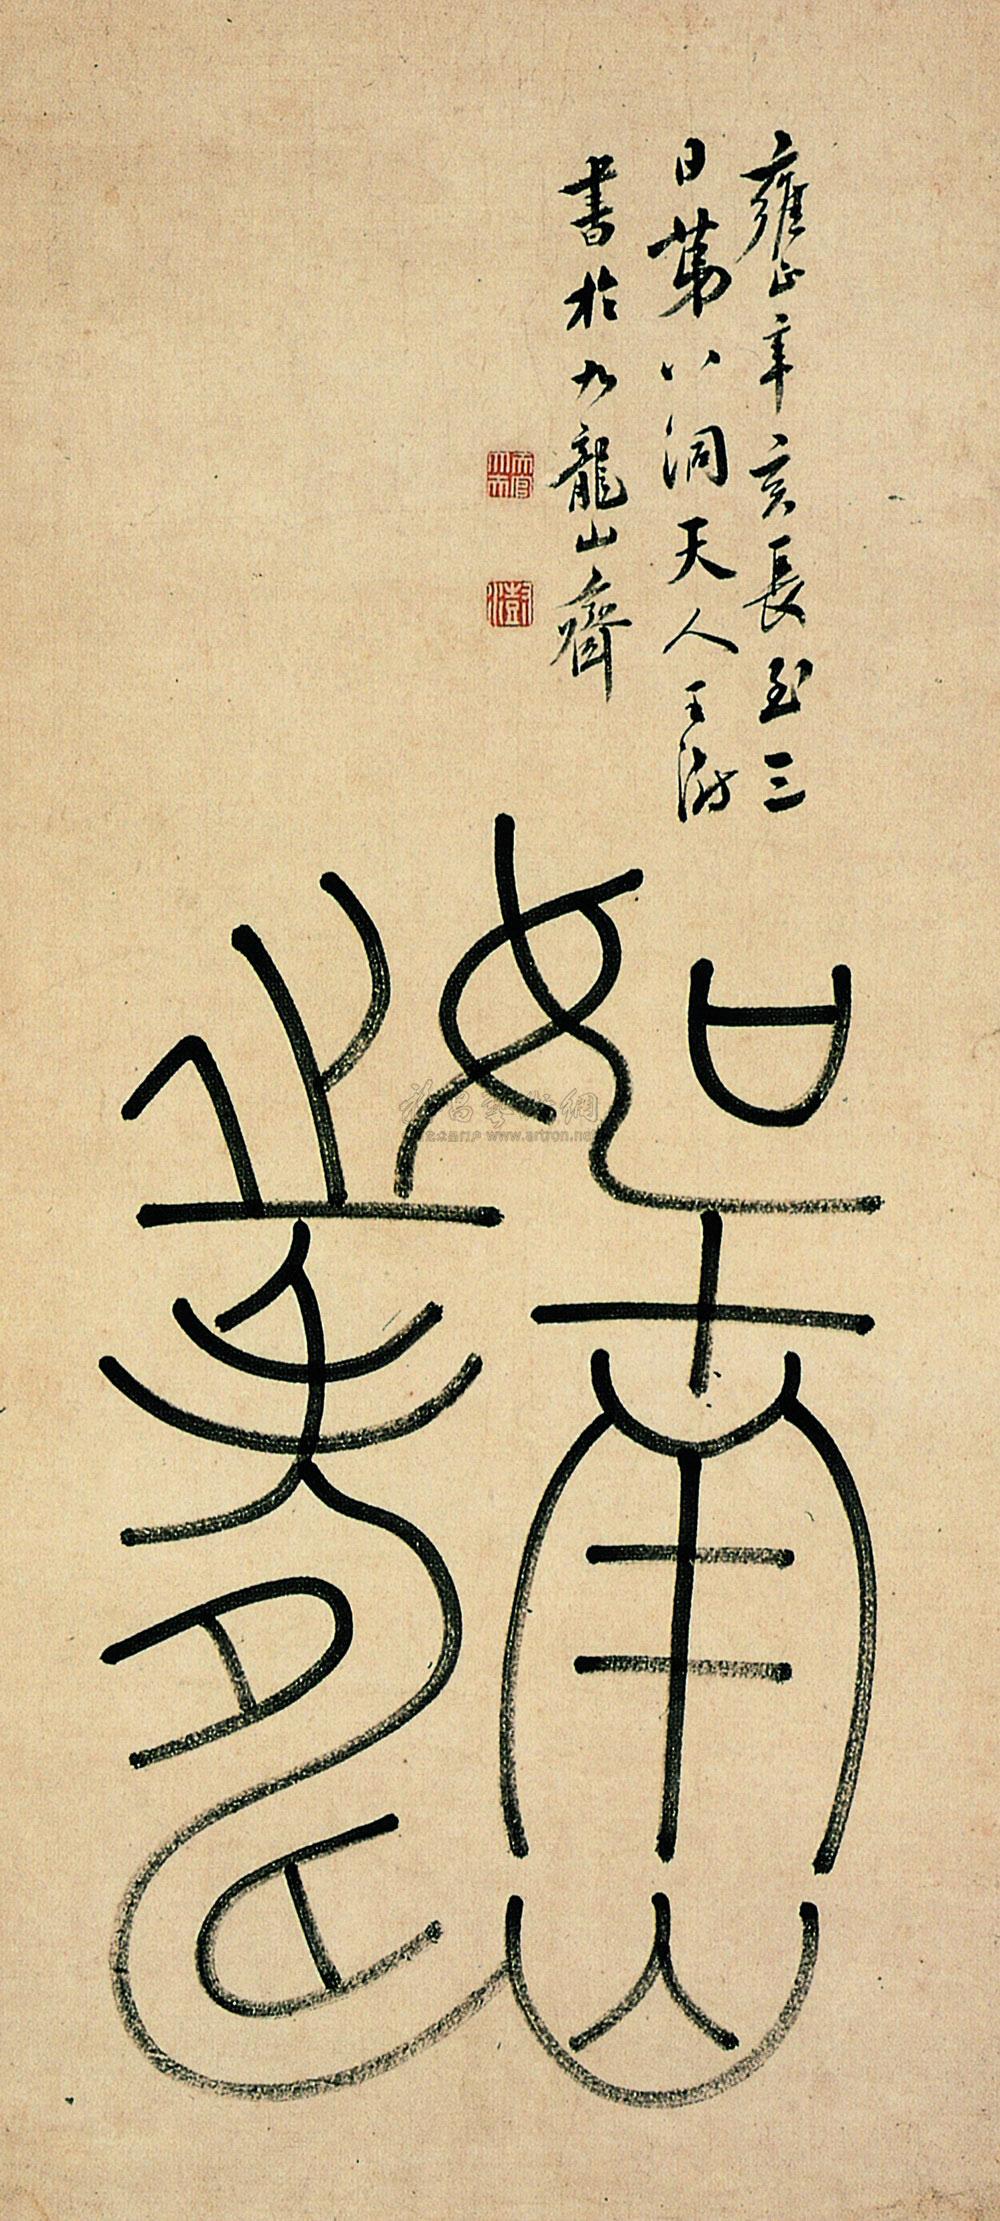 雍正辛亥長至三
日第八洞天人王澍
書於九龍山齋
如南山
之壽
雅昌藝術網
www.artron.net